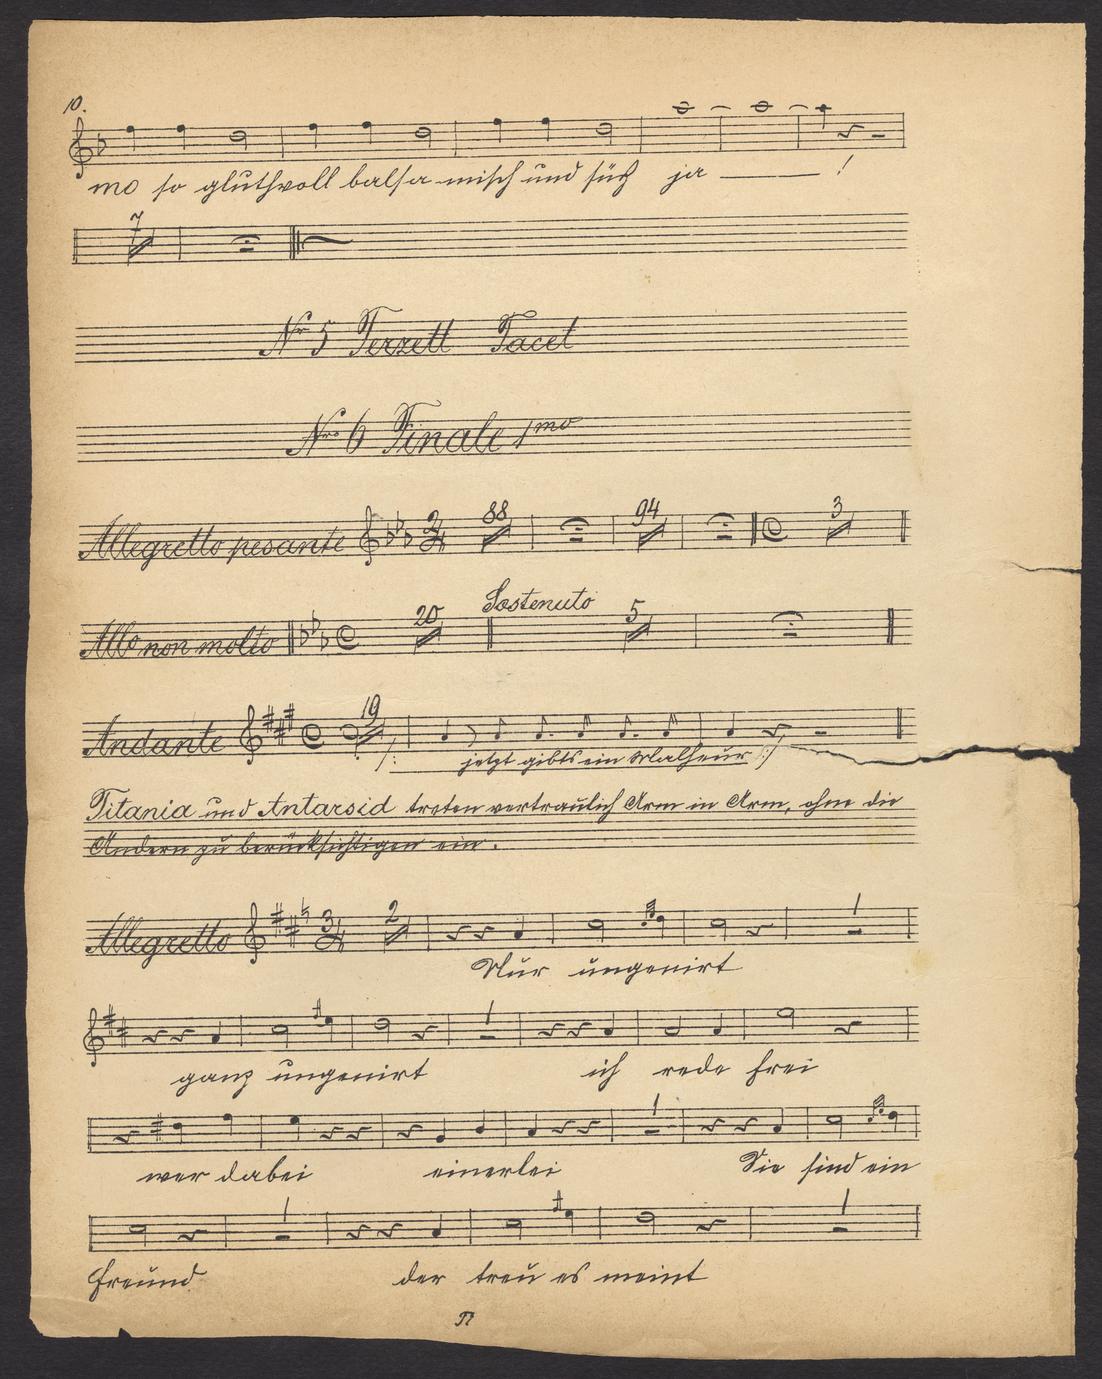 10.
mo so gluthvoll balsa-misch und süß ja !
7
Nr 5 Terzett Tacet
Nro 6 Finale 1mo
Allegretto pesante 2/4 88 94 3
Allo non molto 20 Sostenuto 5
Andante 19
jetzt gibts ein Malheur
Titania und Antarsid treten vertraulich Arm in Arm, ohne die
Andern zu berücksichtigen ein.
Allegretto 3/4 2 1
Nur ungenirt
1
ganz ungenirt ich rede frei
1
wer dabei einerlei Sie sind ein
1 1
Freund der treu es meint